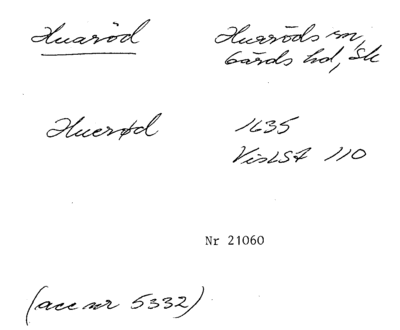 Huaröd Huaröds sn,
Gärds hd, Sk
Huerød 1635
VisLSA 110
Nr 21060
(acc nr 5332)